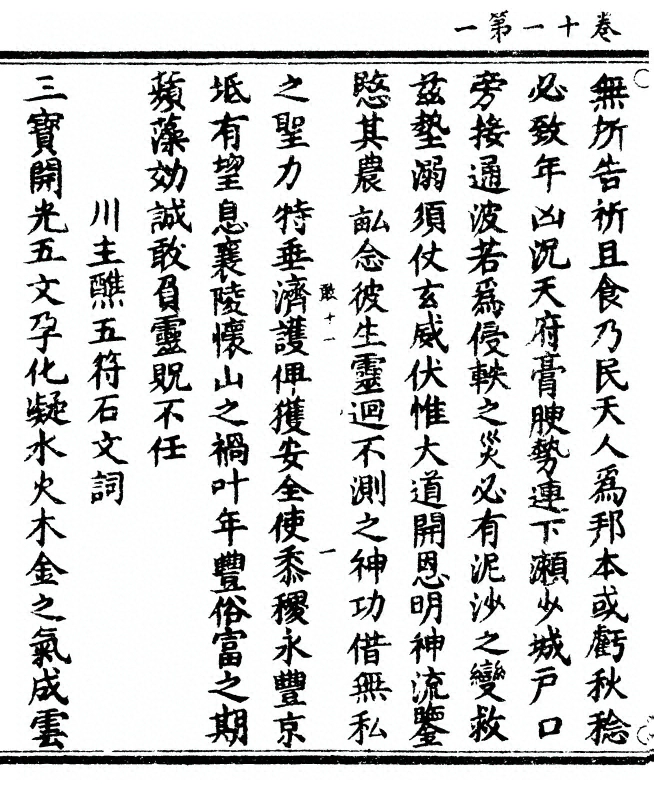 卷十一第一
無所告祈且食乃民天人爲邦本或虧秋稔
必致年凶况天府膏腴勢連下瀬少城戸口
旁接通波若爲侵軼之災必有泥沙之變救
茲墊溺須仗玄威伏惟大道開恩明神流鑒
愍其農畝念彼生靈迴不測之神功借無私
敢十一
一
之聖力特垂濟護俾獲安全使黍稷永豐京
坻有望息襄陵懷山之禍叶年豐俗富之期
蘋藻効誠敢負靈貺不任
川主醮五符石文詞
三寶開光五文孕化凝水火木金之氣成雲